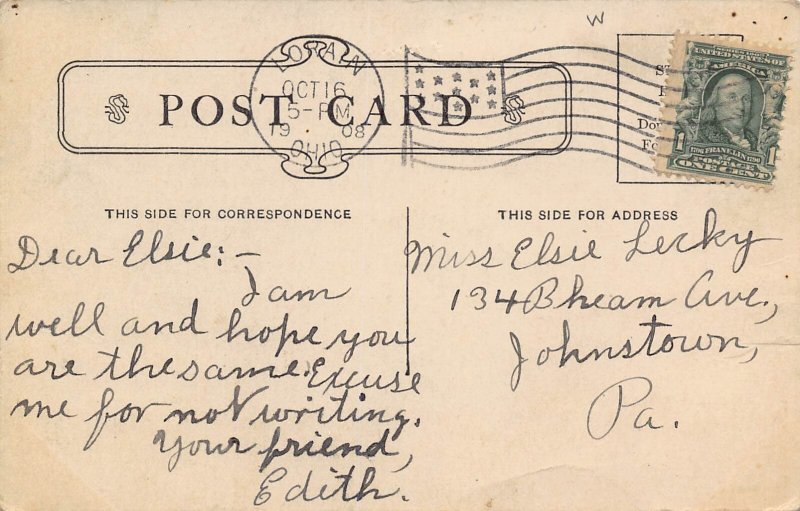 W
POST CARD
LORAIN
OCT 16
5-PM
1908
OHIO
UNITED STATES OF
AMERICA
1706 FRANKLIN 1790
1 1
POSTAGE
ONE CENT
THIS SIDE FOR CORRESPONDENCE
Dear Elsie:-
I am
well and hope you
are the same. Excuse
me for not writing.
Your friend,
Edith.
THIS SIDE FOR ADDRESS
Miss Elsie Lecky
134 Bheam Ave.,
Johnstown,
Pa.